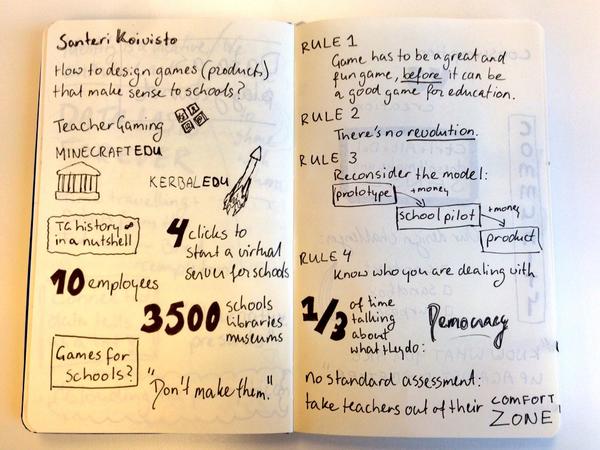 Santeri Koivisto
How to design games (products)
that make sense to schools?
TeacherGaming
MINECRAFTEDU
KERBALEDU
TG history
in a nutshell
4 clicks to
start a virtual
server for schools
10 employees
3500 schools
libraries
museums
Games for
schools?
"Don't make them."
RULE 1
Game has to be a great and
fun game, before it can be
a good game for education.
RULE 2
There's no revolution.
RULE 3
Reconsider the model:
prototype
+money
school pilot
+money
product
RULE 4
Know who you are dealing with
1/3 of time
talking
about
what they do:
Democracy
no standard assessment:
take teachers out of their COMFORT
ZONE